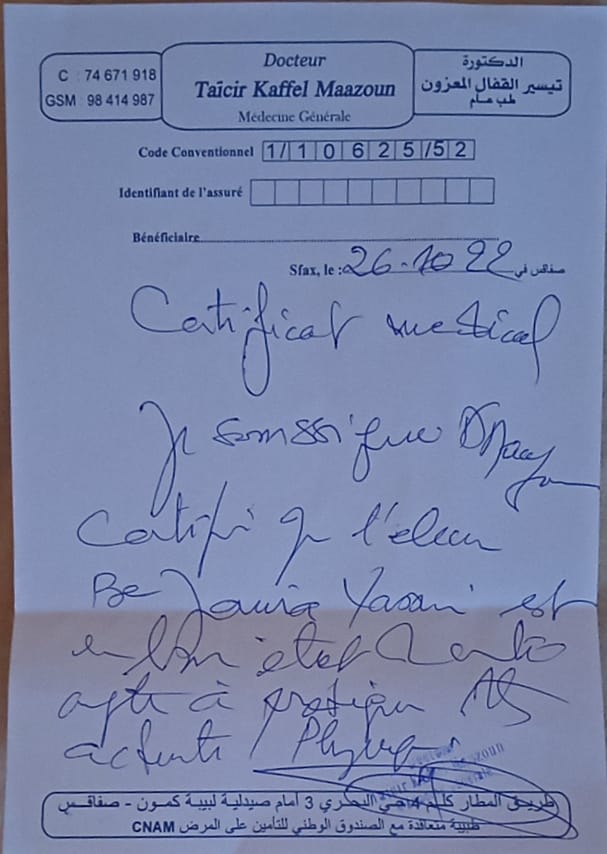 C : 74 671 918
GSM : 98 414 987
Docteur
Taïcir Kaffel Maazoun
Médecine Générale
الدكتورة
تيسير القفال المعزون
طب عام
Code Conventionnel 1/10625/52
Identifiant de l'assuré
Bénéficiaire
Sfax, le : 26-10 22 صفاقس في
Certificat medical
Je soussigne Dr
Certifi que l'eleve
Be Yasmi est
en bon état Sante
apte à pratiquer
activité Physique
طريق المطار كلم 4 حي البحري 3 أمام صيدلية لبيبة كمون - صفاقس
طبيبة متعاقدة مع الصندوق الوطني للتأمين على المرض CNAM